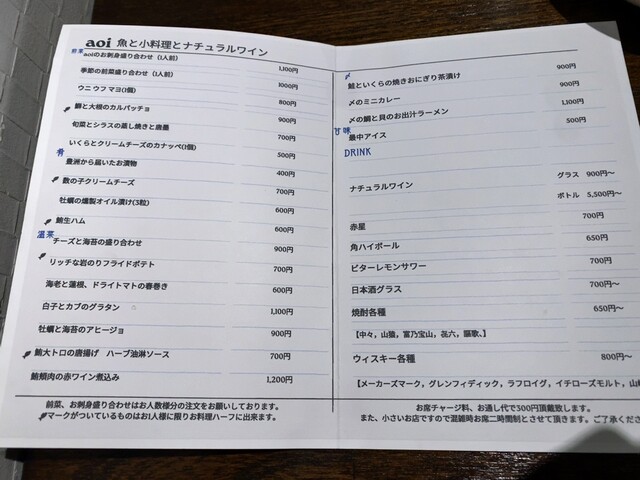 aoi 魚と小料理とナチュラルワイン
前菜
aoiのお刺身盛り合わせ（1人前） 1,100円
季節の前菜盛り合わせ（1人前） 1000円
ウニ ウフ マヨ(1個) 800円
鰤と大根のカルパッチョ 900円
旬菜とシラスの蒸し焼きと唐墨 700円
いくらとクリームチーズのカナッペ(1個) 500円
肴
豊洲から届いたお漬物 400円
数の子クリームチーズ 700円
牡蠣の燻製オイル漬け(3粒) 600円
鮪生ハム 600円
温菜
チーズと海苔の盛り合わせ 900円
リッチな岩のりフライドポテト 700円
海老と蓮根、ドライトマトの春巻き 600円
白子とカブのグラタン 1,100円
牡蠣と海苔のアヒージョ 900円
鮪大トロの唐揚げ ハーブ油淋ソース 700円
鮪頬肉の赤ワイン煮込み 1,200円
前菜、お刺身盛り合わせはお人数様分の注文をお願いしております。
マークがついているものはお1人様に限りお料理ハーフに出来ます。
〆
鮭といくらの焼きおにぎり茶漬け 900円
〆のミニカレー 900円
〆の鯛と貝のお出汁ラーメン 1,100円
甘味
最中アイス 500円
DRINK
ナチュラルワイン グラス 900円〜
ボトル 5,500円〜
赤星 700円
角ハイボール 650円
ビターレモンサワー 700円
日本酒グラス 700円〜
焼酎各種 650円〜
【中々，山猿，富乃宝山，㐂六，謳歌、】
ウィスキー各種 800円〜
【メーカーズマーク，グレンフィディック，ラフロイグ，イチローズモルト，山
お席チャージ料、お通し代で300円頂戴致します。
また、小さいお店ですので混雑時お席二時間制とさせて頂きます。ご了承くださ